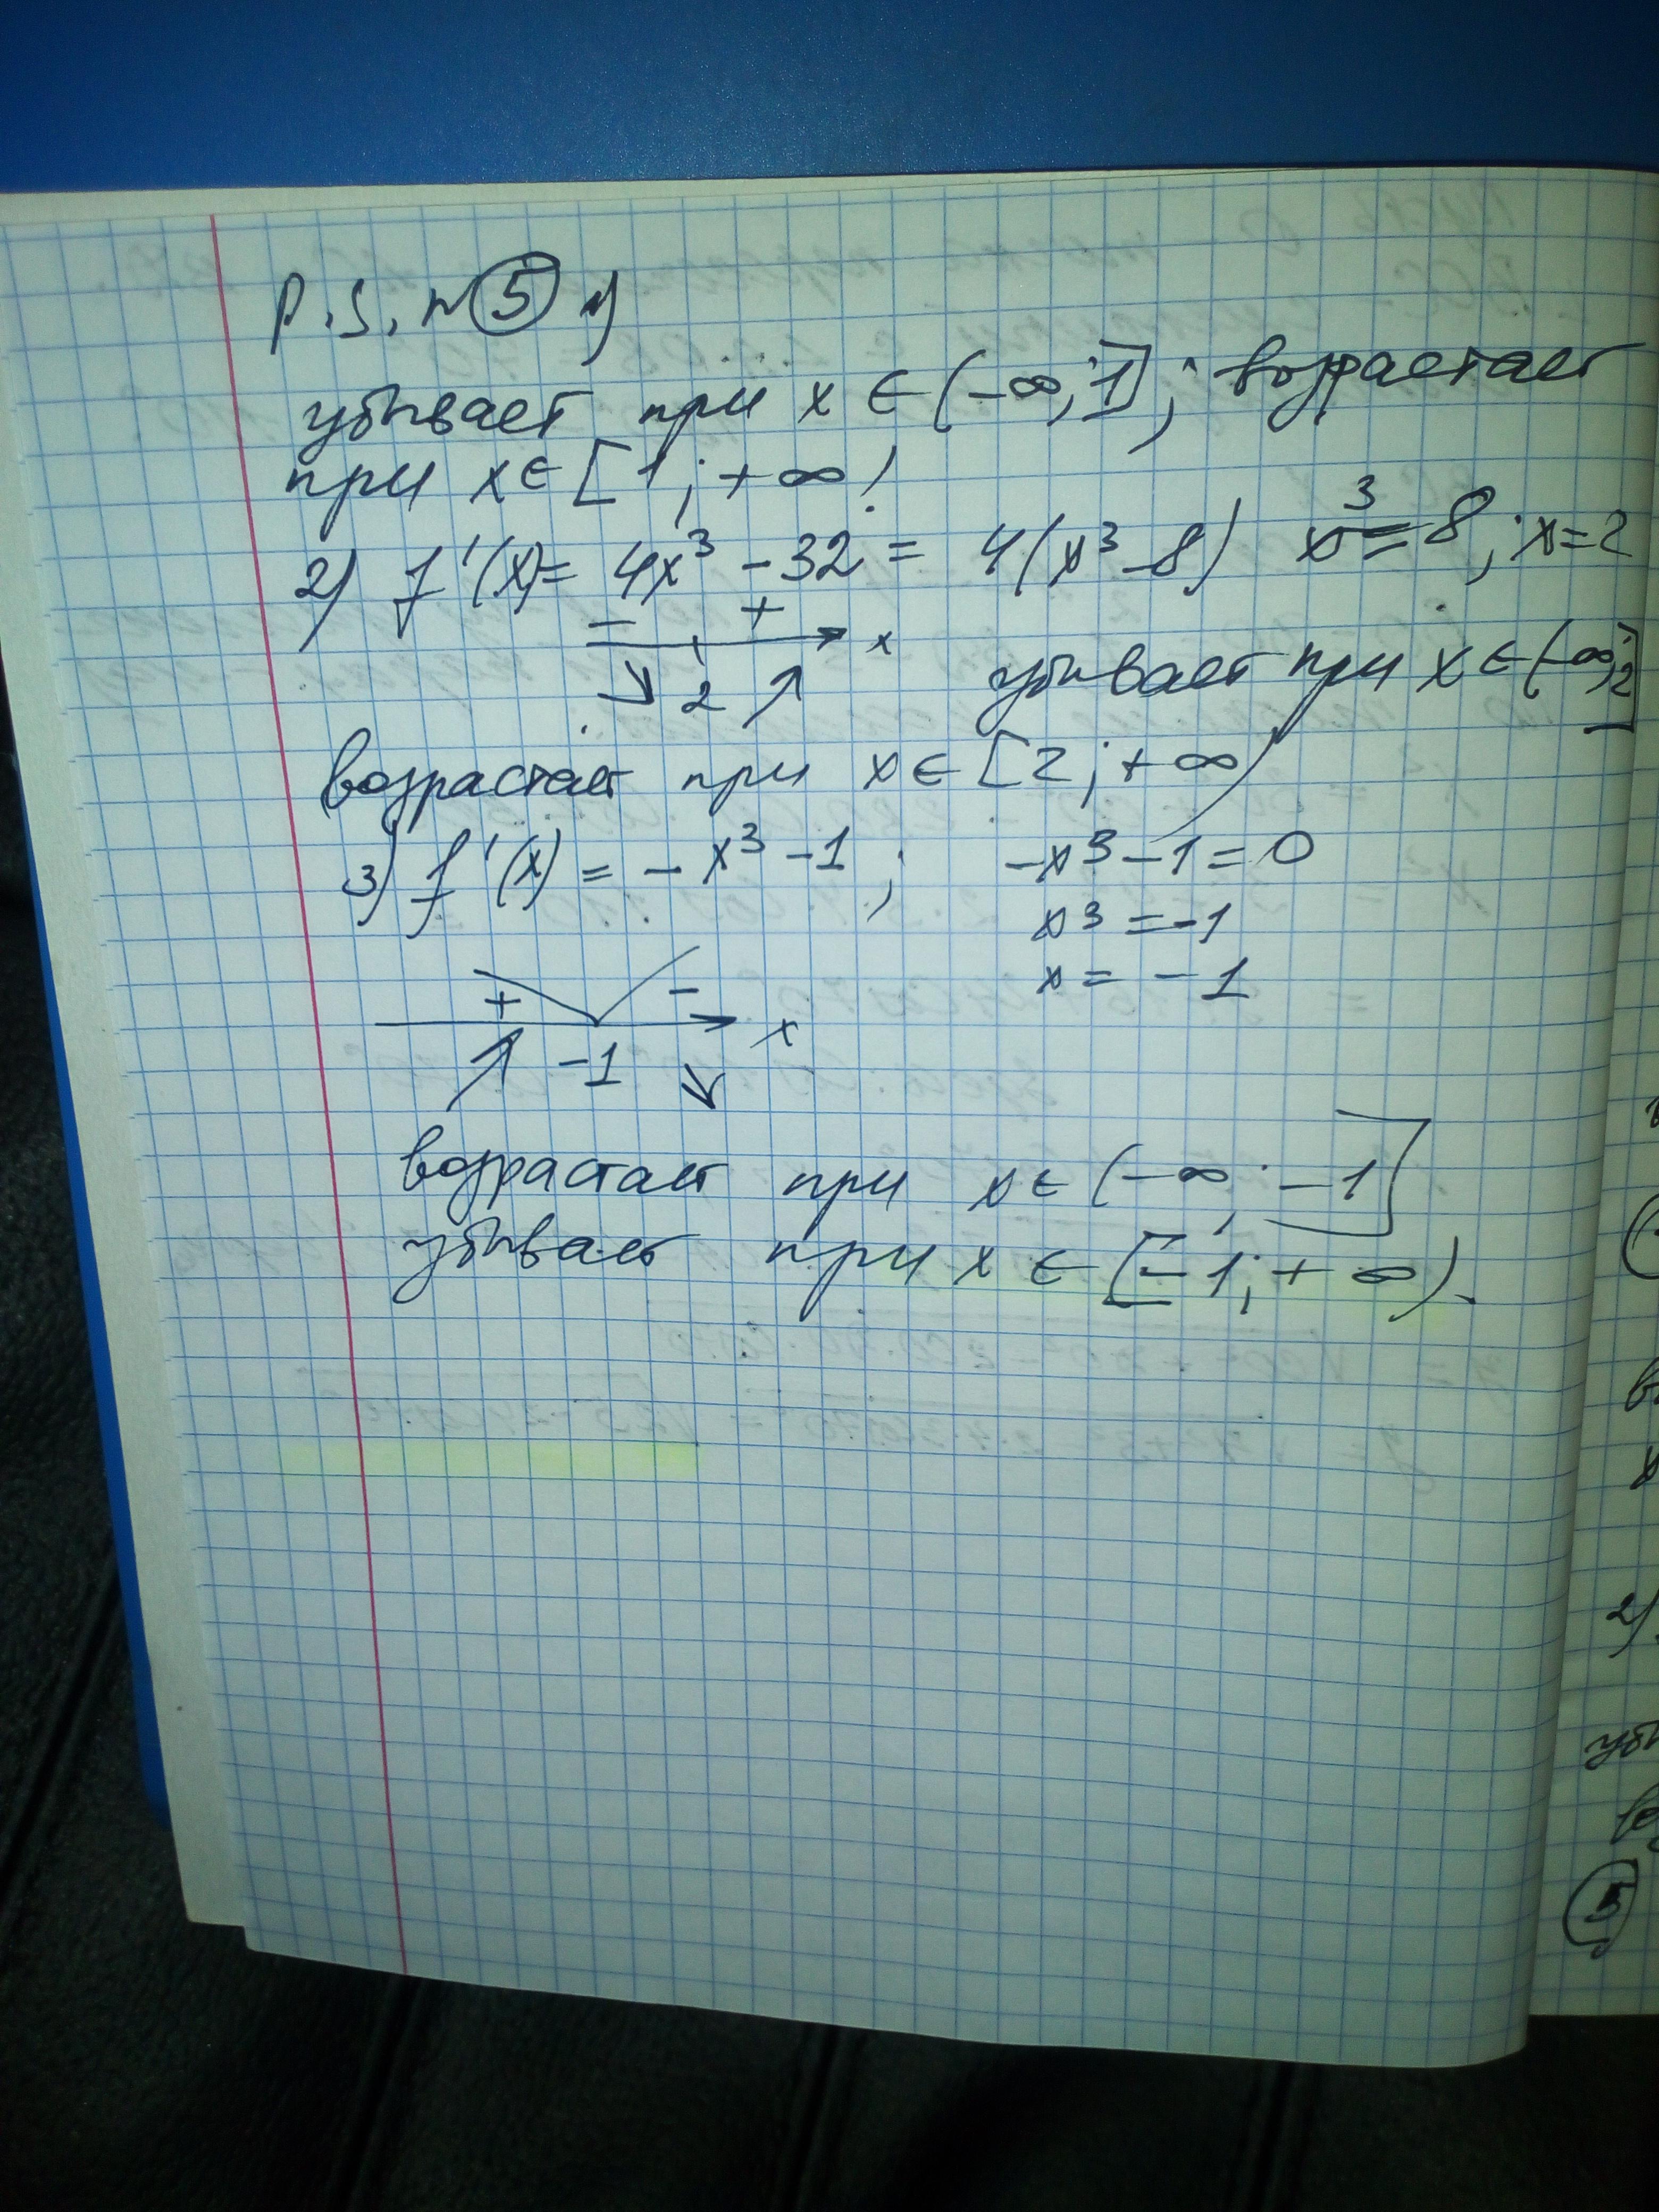 P.S. N 5 1)
убывает при x ∈ (-∞; 1]; возрастает
при x ∈ [1; +∞)
2) f'(x) = 4x³ - 32 = 4(x³ - 8) x³ = 8; x = 2
- + x
2
убывает при x ∈ (-∞; 2]
возрастает при x ∈ [2; +∞)
3) f'(x) = -x³ - 1; -x³ - 1 = 0
x³ = -1
x = -1
+ - x
-1
возрастает при x ∈ (-∞; -1]
убывает при x ∈ [-1; +∞).
2)
5